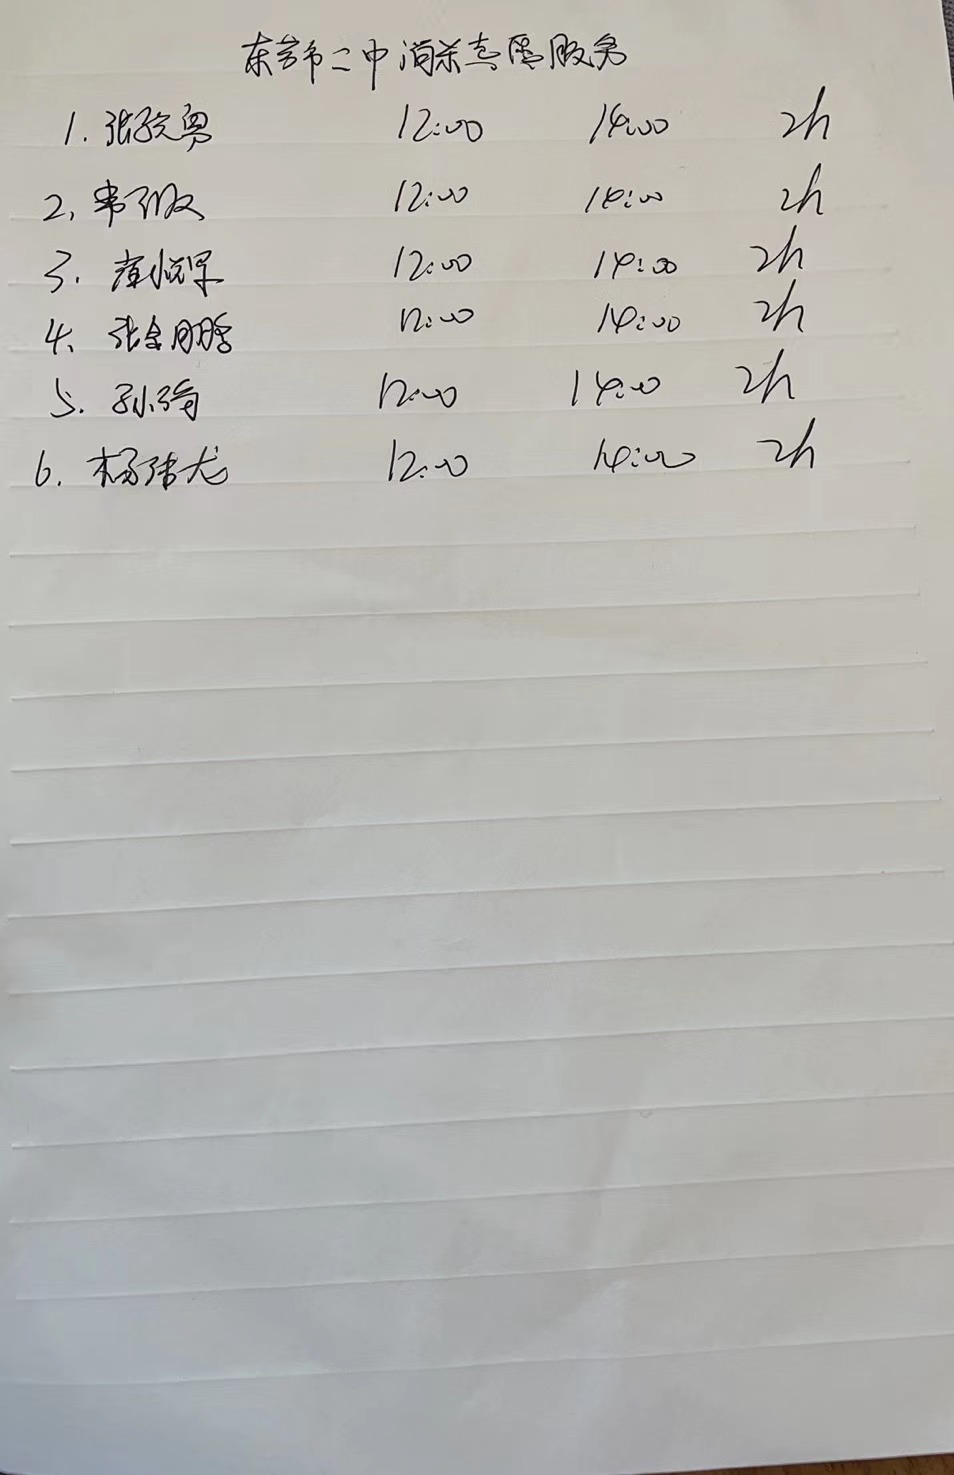 东台市二中消杀志愿服务
1. 张 勇 12:00 14:00 2h
2. 12:00 14:00 2h
3. 12:00 14:00 2h
4. 张金鹏 12:00 14:00 2h
5. 孙 12:00 14:00 2h
6. 杨 龙 12:00 14:00 2h